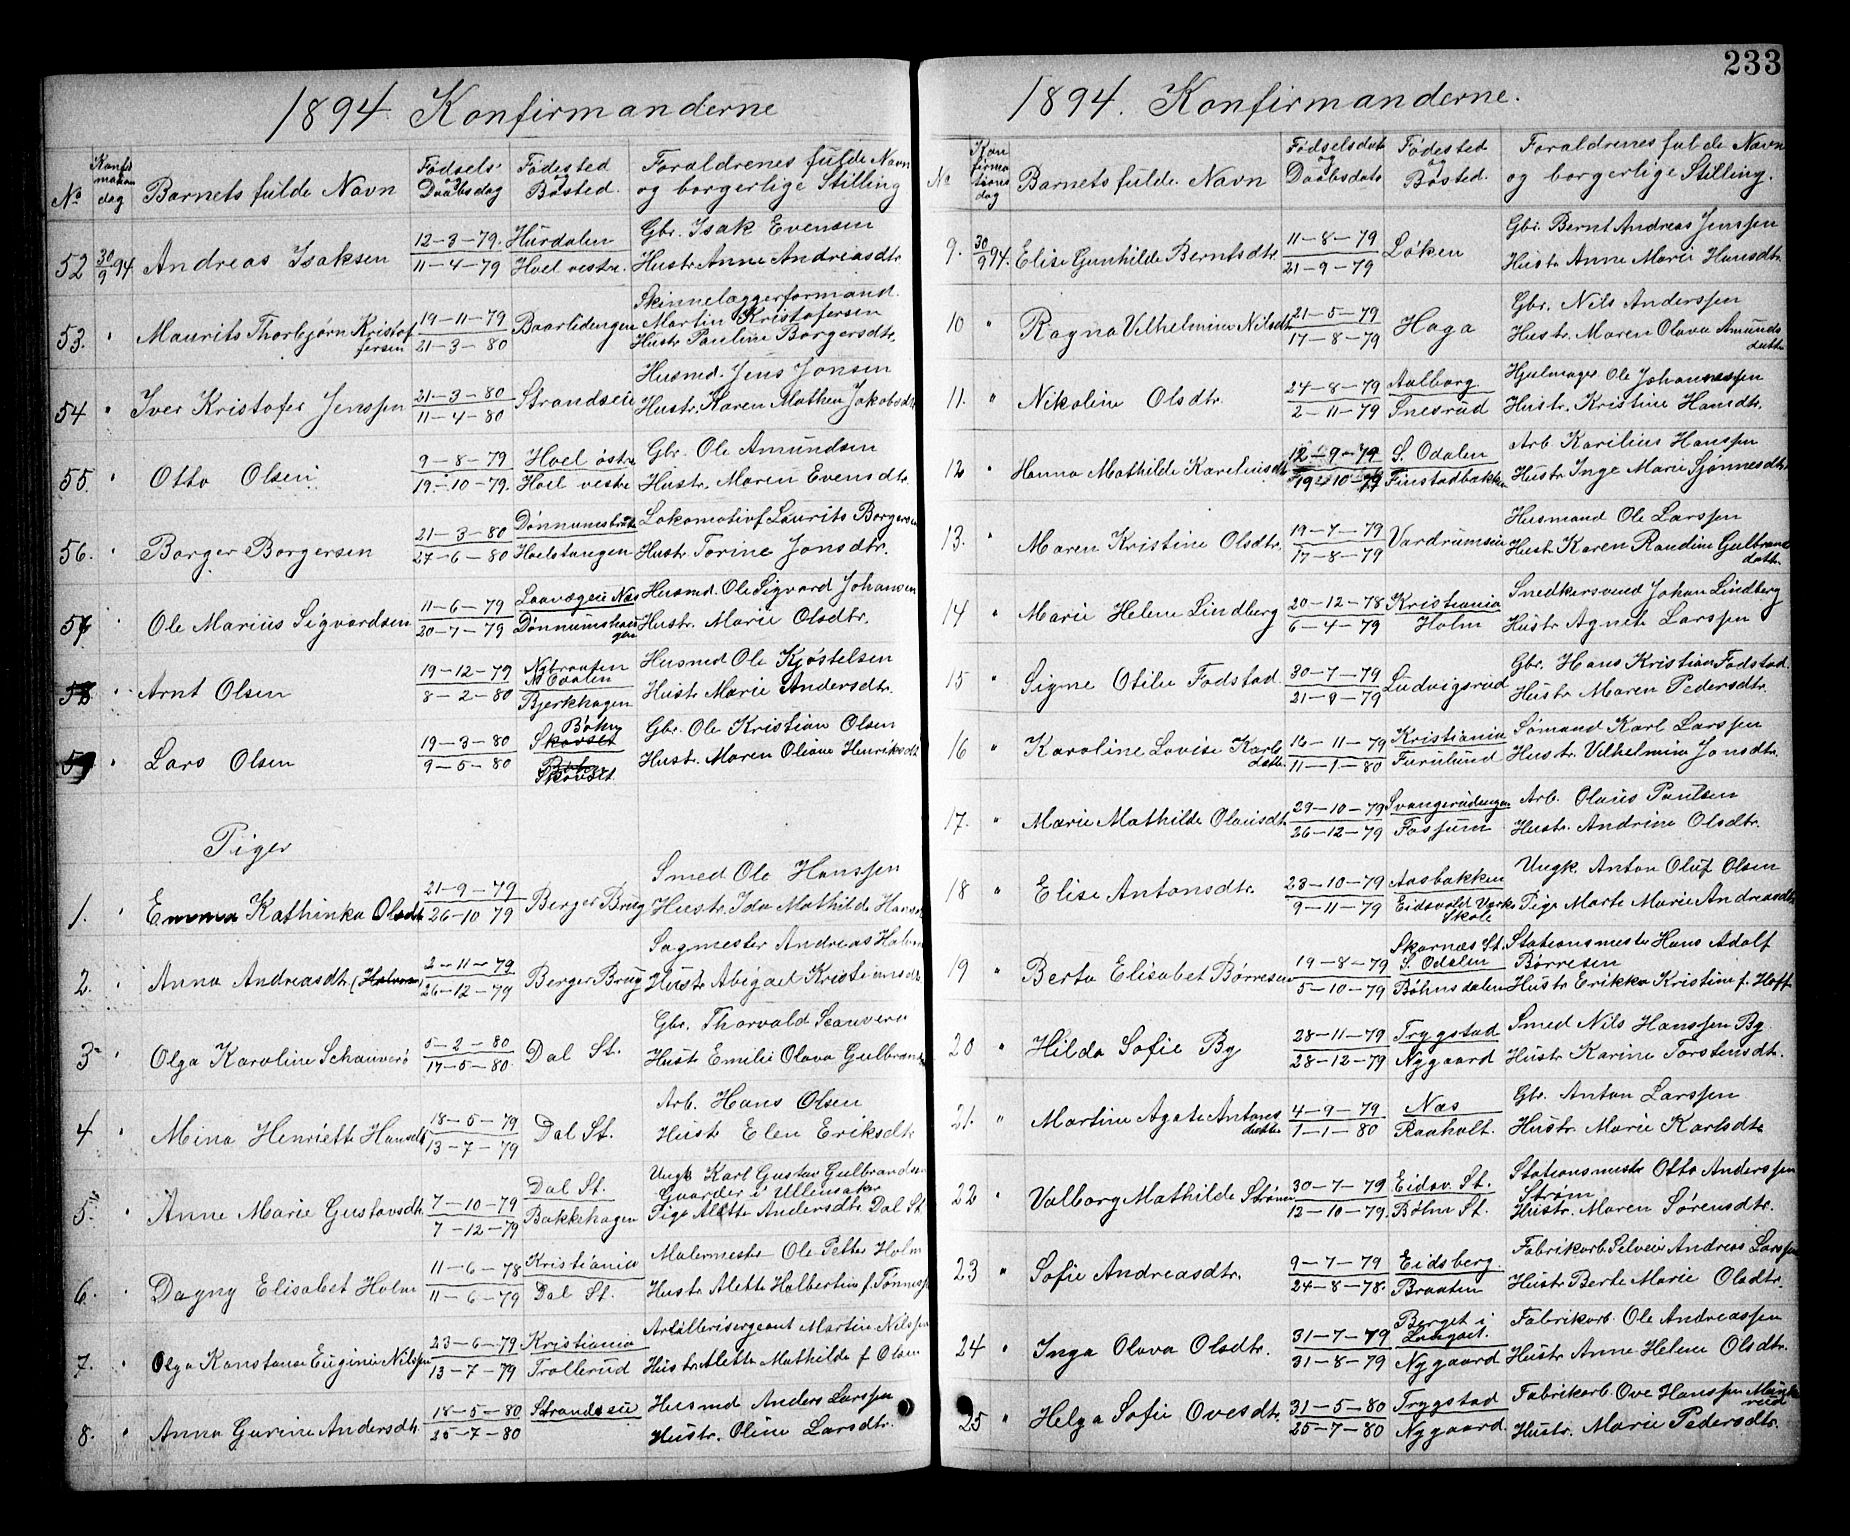 233
1894. Konfirmanderne
No Konfirmationsdag Barnets fulde Navn Fødsels og Daabsdag Fødested og Bosted. Foraldrenes fulde Navn og borgerlige Stilling
52 30/9 94 Andreas Isaksen 12-3-79. 11-4-79 Hurdalen Hoel vestre. Gbr. Isak Evensen
Hustr. Anne Andreasdtr.
53. " Maurits Thorbjørn Kristoffersen 19-11-79 21-3-80 Baarlidengen Skinnelæggerformand.
Martin Kristofersen
Hustr Pauline Borgersdtr.
54 " Iver Kristofer Jenssen 21-3-80 11-4-80 Strandseie Husmd. Jens Jonsen
Hustr. Karen Mathea Jakobsdtr
55. " Otto Olsen 9-8-79 19-10-79. Hoel østre Hoel vestre Gbr. Ole Amundsen
Hustr. Maren Evensdtr.
56. " Borger Borgersen 21-3-80 27-6-80 Hoelstangen Lokomotivf. Laurits Borgersen
Hustr. Torine Jonsdtr.
57 " Ole Marius Sigvardsen 11-6-79 20-7-79 Husmd. Ole Sigvard Johansen
Hustr. Marie Olsdtr.
58 " Arnt Olsen 19-12-79 8-2-80 Nybraaten N. Odalen Bjerkhagen Husmd Ole Kjøstelsen
Hustr Marie Andersdtr.
59 " Lars Olsen 19-3-80 9-5-80 Bøhn Skovset Bøhn Skovset Gbr. Ole Kristian Olsen
Hustr. Maren Oliane Henriksdt
Piger
1. " Emma Kathinka Olsdtr 21-9-79 26-10 79 Berger Brug Smed Ole Hanssen
Hustr. Ida Mathilde Hansd
2. " Anna Andreasdtr. (Holven) 2-11-79 26-12-79 Berger Brug Sagmester Andreas Holven
Hustr Abigael Kristiansdtr
3 " Olga Karoline Schauverø 5-2-80 17-5-80. Dal St. Gbr. Thorvald Scauverø
Hustr Emilie Olava Gulbrands
4 " Mina Henriette Hansdtr 18-5-79 13-7-79 Dal St. Arb. Hans Olsen
Hustr Elen Eriksdtr
5. " Anne Marie Gustavsdtr 7-10-79 7-12-79 Dal St. Bakkehagen Ungk Karl Gustav Gulbrandsen
Gaarder i Ullensaker
Pige Alette Andersdtr. Dal St
6. " Dagny Elisabet Holm 11-6-78 11-6-79 Kristiania Dal St. Malermester Ole Petter Holm
Hustr. Alette Halbertine f. Tønness
7. " Olga Konstanse Euginie Nilssen 23-6-79 13-7-79 Kristiania Trollerud Artillerisergeant Martin Nilssen
Hustr. Alette Mathilde f Olsen
8. " Anna Gurine Andersdtr. 18-5-80 25-7-80 Strandseie Husmd Anders Larssen
Hustr. Oline Larsdtr.
1894. Konfirmanderne.
No Konfirmationsdag Barnets fulde Navn Fødselsdato og Daabsdato Fødested og Bosted. Foraldrenes fulde Navn og borgerlige Stilling.
9. 30/9 94. Elise Gunhilde Berntsdtr. 11-8-79 21-9-79 Løken Gbr. Bernt Andreas Jenssen
Hustr Anne Marie Hansdtr.
10 " Ragna Vilhelmine Nilsdtr 21-5-79 17-8-79 Haga Gbr. Nils Anderssen
Hustr. Maren Olava Amundsdatter
11. " Nikoline Olsdtr. 24-8-79 2-11-79 Aalborg Snesrud Hjulmager Ole Johannessen
Hustr. Kristine Hansdtr.
12 " Hanna Mathilde Kareliusdtr 12-9-79 19-10-79 S. Odalen Finstadbakken Arb Karilius Hanssen
Hustr Inge Marie Sjønnesdtr
13. " Maren Kristine Olsdtr. 19-7-79 17-8-79 Vardrumseie Husmand Ole Larssen
Hustr Karen Randine Gulbrandsdatter
14 " Marie Helene Lindberg 20-12-78 6-4-79 Kristiania Holm Snedkersvend Johan Lindberg
Hustr Agnete Larssen
15 " Signe Otilie Fodstad. 30-7-79 21-9-79 Ludvigsrud Gbr. Hans Kristian Fodstad.
Hustr Maren Pedersdtr.
16 " Karoline Lovise Karlsdatter. 16-11-79 11-1-80 Kristiania Furulund Sømand Karl Larssen
Hustr. Vilhelmine Jonsdtr.
17. " Marie Mathilde Olausdtr 29-10-79 26-12-79 Svangsrudengen Fossum Arb. Olaus Paulsen
Hustr. Andrine Olsdtr.
18 " Elise Antonsdtr. 23-10-79 9-11-79 Aasbakken Eidsvold Værks Skole Ungk. Anton Oluf Olsen
Pige Marte Marie Andreasdtr
19 " Berta Elisabet Børresen 19-8-79 5-10-79 Skarnæs St. S. Odalen Bøhnsdalen Stationsmester Hans Adolf
Børresen
Hustr Erikka Kristine f. Hoff
20 " Hilda Sofie By 28-11-79 28-12-79 Trygstad Nygaard Smed Nils Hanssen By
Hustr Karine Torstensdtr.
21. " Martine Agate Antonsdatter 4-9-79 1-1-80 Næs Raaholt. Gbr. Anton Larssen
Hustr. Marie Karlsdtr
22 " Valborg Mathilde Strøm 30-7-79 12-10-79. Eidsv. St. Bøhn St. Stationsmestr Otto Anderssen
Strøm
Hustr. Maren Sørensdtr.
23 " Sofie Andreasdtr. 9-7-79 24-8-78. Eidsberg Braaten Fabrikarb. Andreas Larssen
Hustr Berte Marie Olsdtr.
24 " Inga Olava Olsdtr. 31-7-79 31-8-79 Berget i Nygaard Fabrikarb. Ole Andreassen
Hustr Anne Helene Olsdtr.
25 " Helga Sofie Ovesdtr. 31-5-80 25-7-80 Trygstad Nygaard. Fabrikarb. Ove Hanssen
Hustr. Marie Pedersdtr.